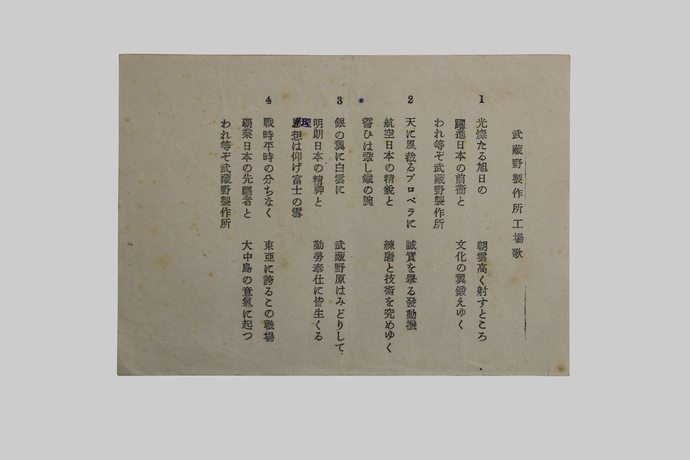 武蔵野製作所工場歌
1 光燦たる旭日の 朝雲高く射すところ
躍進日本の前衛と 文化の翼鍛えゆく
われ等ぞ武蔵野製作所
2 天に風截るプロペラに 誠實を罩る發動機
航空日本の精鋭と 練磨と技術を究めゆく
誓ひは堅し鐵の腕
3 銀の翼に白雲に 武蔵野原はみどりして
明朗日本の精神と 勤勞奉仕に皆生くる
理想は仰げ富士の雪
4 戰時平時の分ちなく 東亜に誇るこの職場
覇業日本の先驅者と 大中島の意氣に起つ
われ等ぞ武蔵野製作所